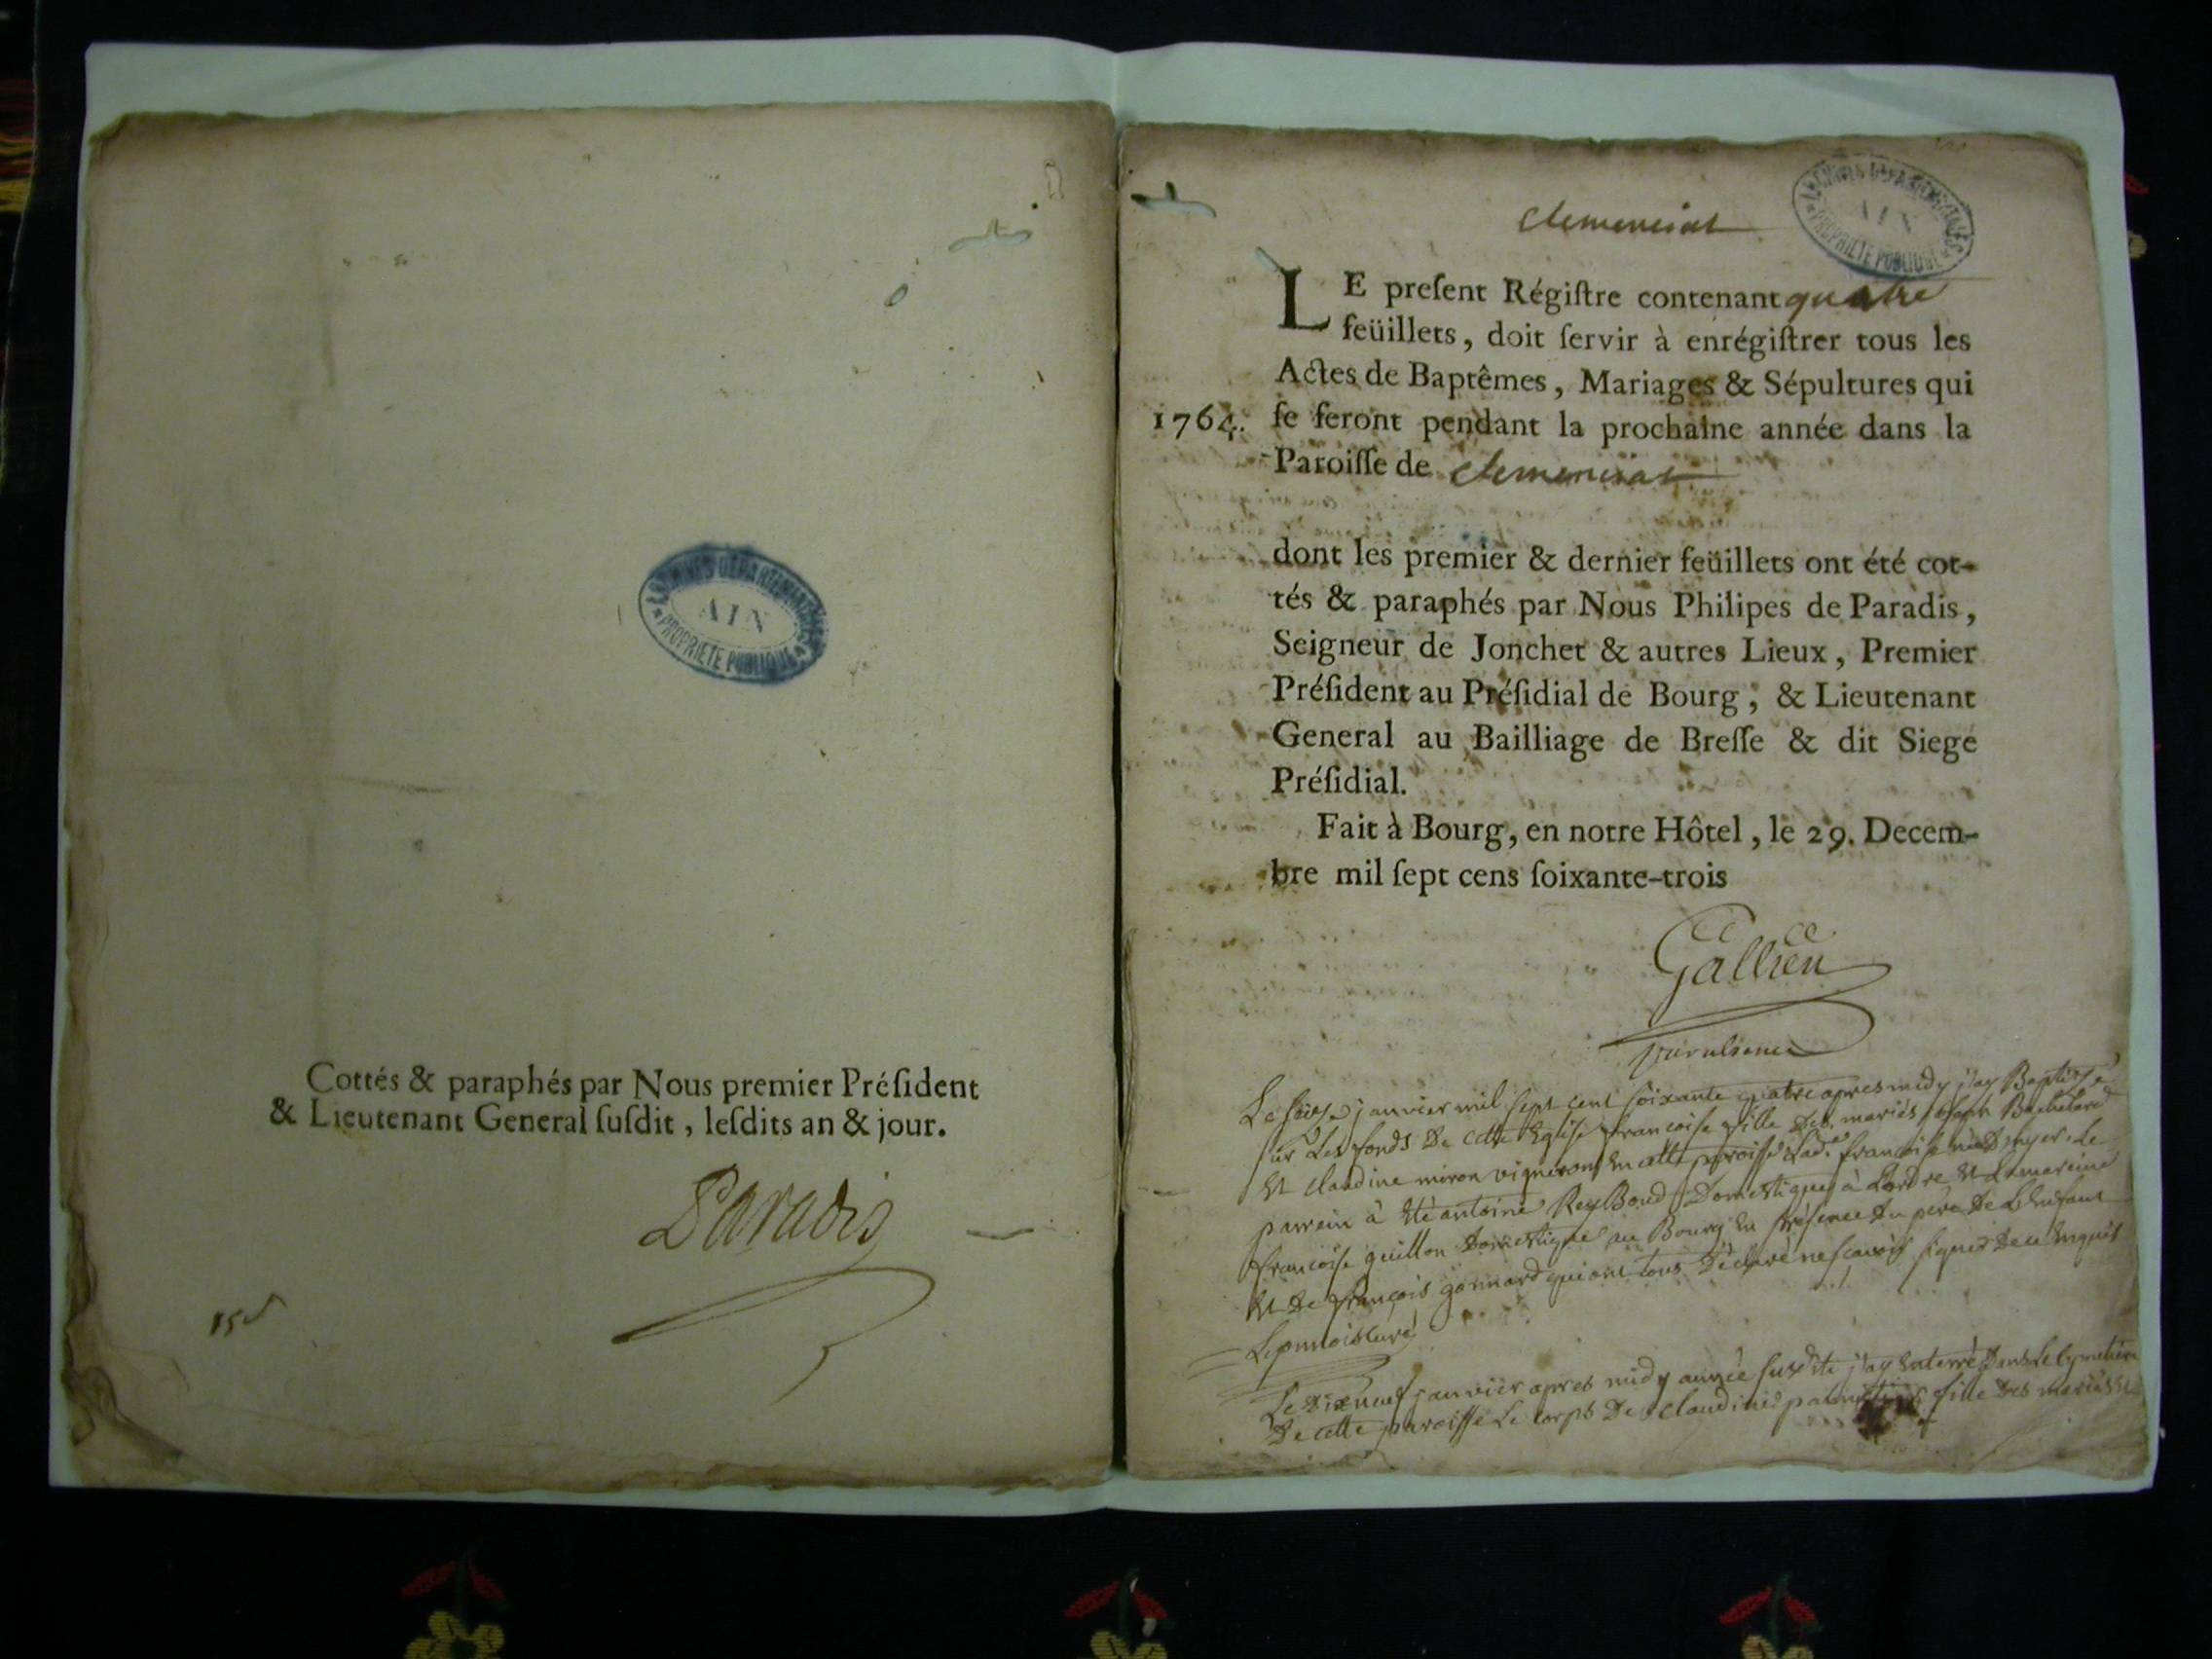 ARCHIVES DÉPARTEMENTALES
AIN
PROPRIÉTÉ PUBLIQUE
Cottés & paraphés par Nous premier Préſident
& Lieutenant General ſuſdit, leſdits an & jour.
Paradis
clemenciat
ARCHIVES DÉPARTEMENTALES
AIN
PROPRIÉTÉ PUBLIQUE
LE preſent Régiſtre contenant quatre
feüillets, doit ſervir à enrégiſtrer tous les
Actes de Baptêmes, Mariages & Sépultures qui
1764. ſe feront pendant la prochaine année dans la
Paroiſſe de clemenciat
dont les premier & dernier feüillets ont été cot-
tés & paraphés par Nous Philipes de Paradis,
Seigneur de Jonchet & autres Lieux, Premier
Préſident au Préſidial de Bourg, & Lieutenant
General au Bailliage de Breſſe & dit Siege
Préſidial.
Fait à Bourg, en notre Hôtel, le 29. Decem-
bre mil ſept cens ſoixante-trois
Gallien
Le seize janvier mil sept cent soixante quatre apres midy j'ay Baptizé
sur Les fonds De cette Eglise francoise fille Des mariés joseph Bachelard
Et claudine miron vignerons En cette paroisse Lad. francoise née D'hyer. Le
parrein à Eté antoine ReyBoud Domestique à Lordre Et La mareine
francoise guillon Domestique au Bourg En présence Du père De L'Enfant
Et De françois gonnard qui ont tous Déclaré ne scavoir signer De ce Enquis
curé
Le Dix neuf janvier apres midy année susdite j'ay Enterré Dans Le Cymetière
De cette paroisse Le corps De claudine fille Des mariés